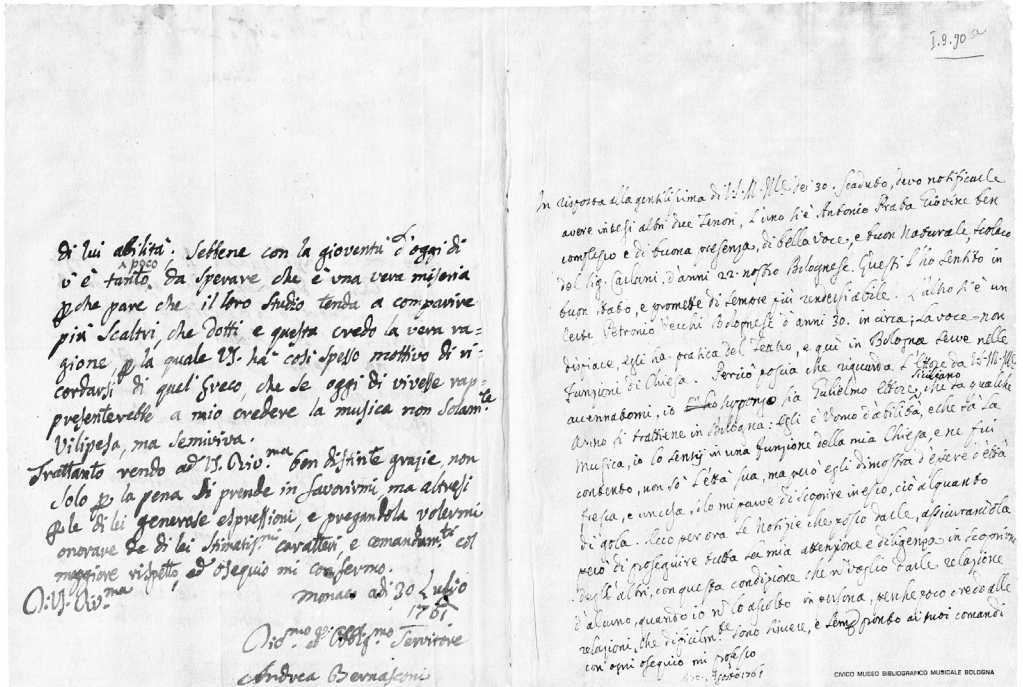 di lui abilità. Sebbene con la gioventù d'oggi dì
v'è tanto poco da sperare che è una vera miseria
p che pare che il loro studio tenda a comparire
più scaltri, che dotti, e questa credo la vera ra=
gione p la quale VS. ha così spesso mottivo di ri=
cordarsi di quel Greco, che se oggi dì vivesse rap=
presenterebbe a mio credere la musica non Solam.te
Vilipesa, ma semiviva.
Trattanto rendo ad VS. Riv.ma ben distinte grazie, non
solo p la pena Si prende in favorirmi, ma altresì
p le di lei generose espressioni, e pregandola volermi
onorare de di lei stimatiss.mi caratteri, e comandam.ti col
maggiore rispetto, ed osequio mi confermo.
D. VS. Riv.ma
Monaco adì 30 Luglio
1761
Servitore
Andrea Bernasconi
I.9.90a
In risposta alla gentilissima di V.S.M.Ill dei 30. Scaduto, devo notificarle
avere intesi altri due Tenori, L'uno si è Antonio Praba Giovine ben
complesso e di buona presenza, di bella voce, e buon Naturale, scolaro
del Sig. Carlani, d'anni 22. nostro Bolognese. Questi l'ho sentito in
buon stato, e promette di sempre più rendersi abile. L'altro si è un
certo Petronio Vecchi Bolognese d'anni 30. in circa; la voce non
dispiace, egli ha pratica del Teatro, e quì in Bologna serve nelle
funzioni di Chiesa. Perciò poscia che riguarda l'Ettore da V.S.M.Ill
accennatomi, io suppongo sia Guglielmo Ettore Siciliano, che da qualche
Anno si trattiene in Bologna: Egli è Uomo d'abilità, e che sà la
Musica, io lo sentij in una funzione della mia Chiesa, e ne fui
contento, non sò l'età sua, ma però egli dimostra d'essere d'età
fresca, solo mi parve di scoprire in esso, ciò alquanto
di gola. Ecco per ora le Notizie che posso darle, assicurandola
però di proseguire tutta la mia attenzione e diligenza in scoprirne
degli altri, con questa condizione che n voglio darle relazione
d'alcuno, quando io n lo ascolto in persona, perche poco credo alle
relazioni, che dificilm.te sono sincere, e sempre pronto ai suoi comandi
con ogni osequio mi professo
Agosto 1761
CIVICO MUSEO BIBLIOGRAFICO MUSICALE BOLOGNA